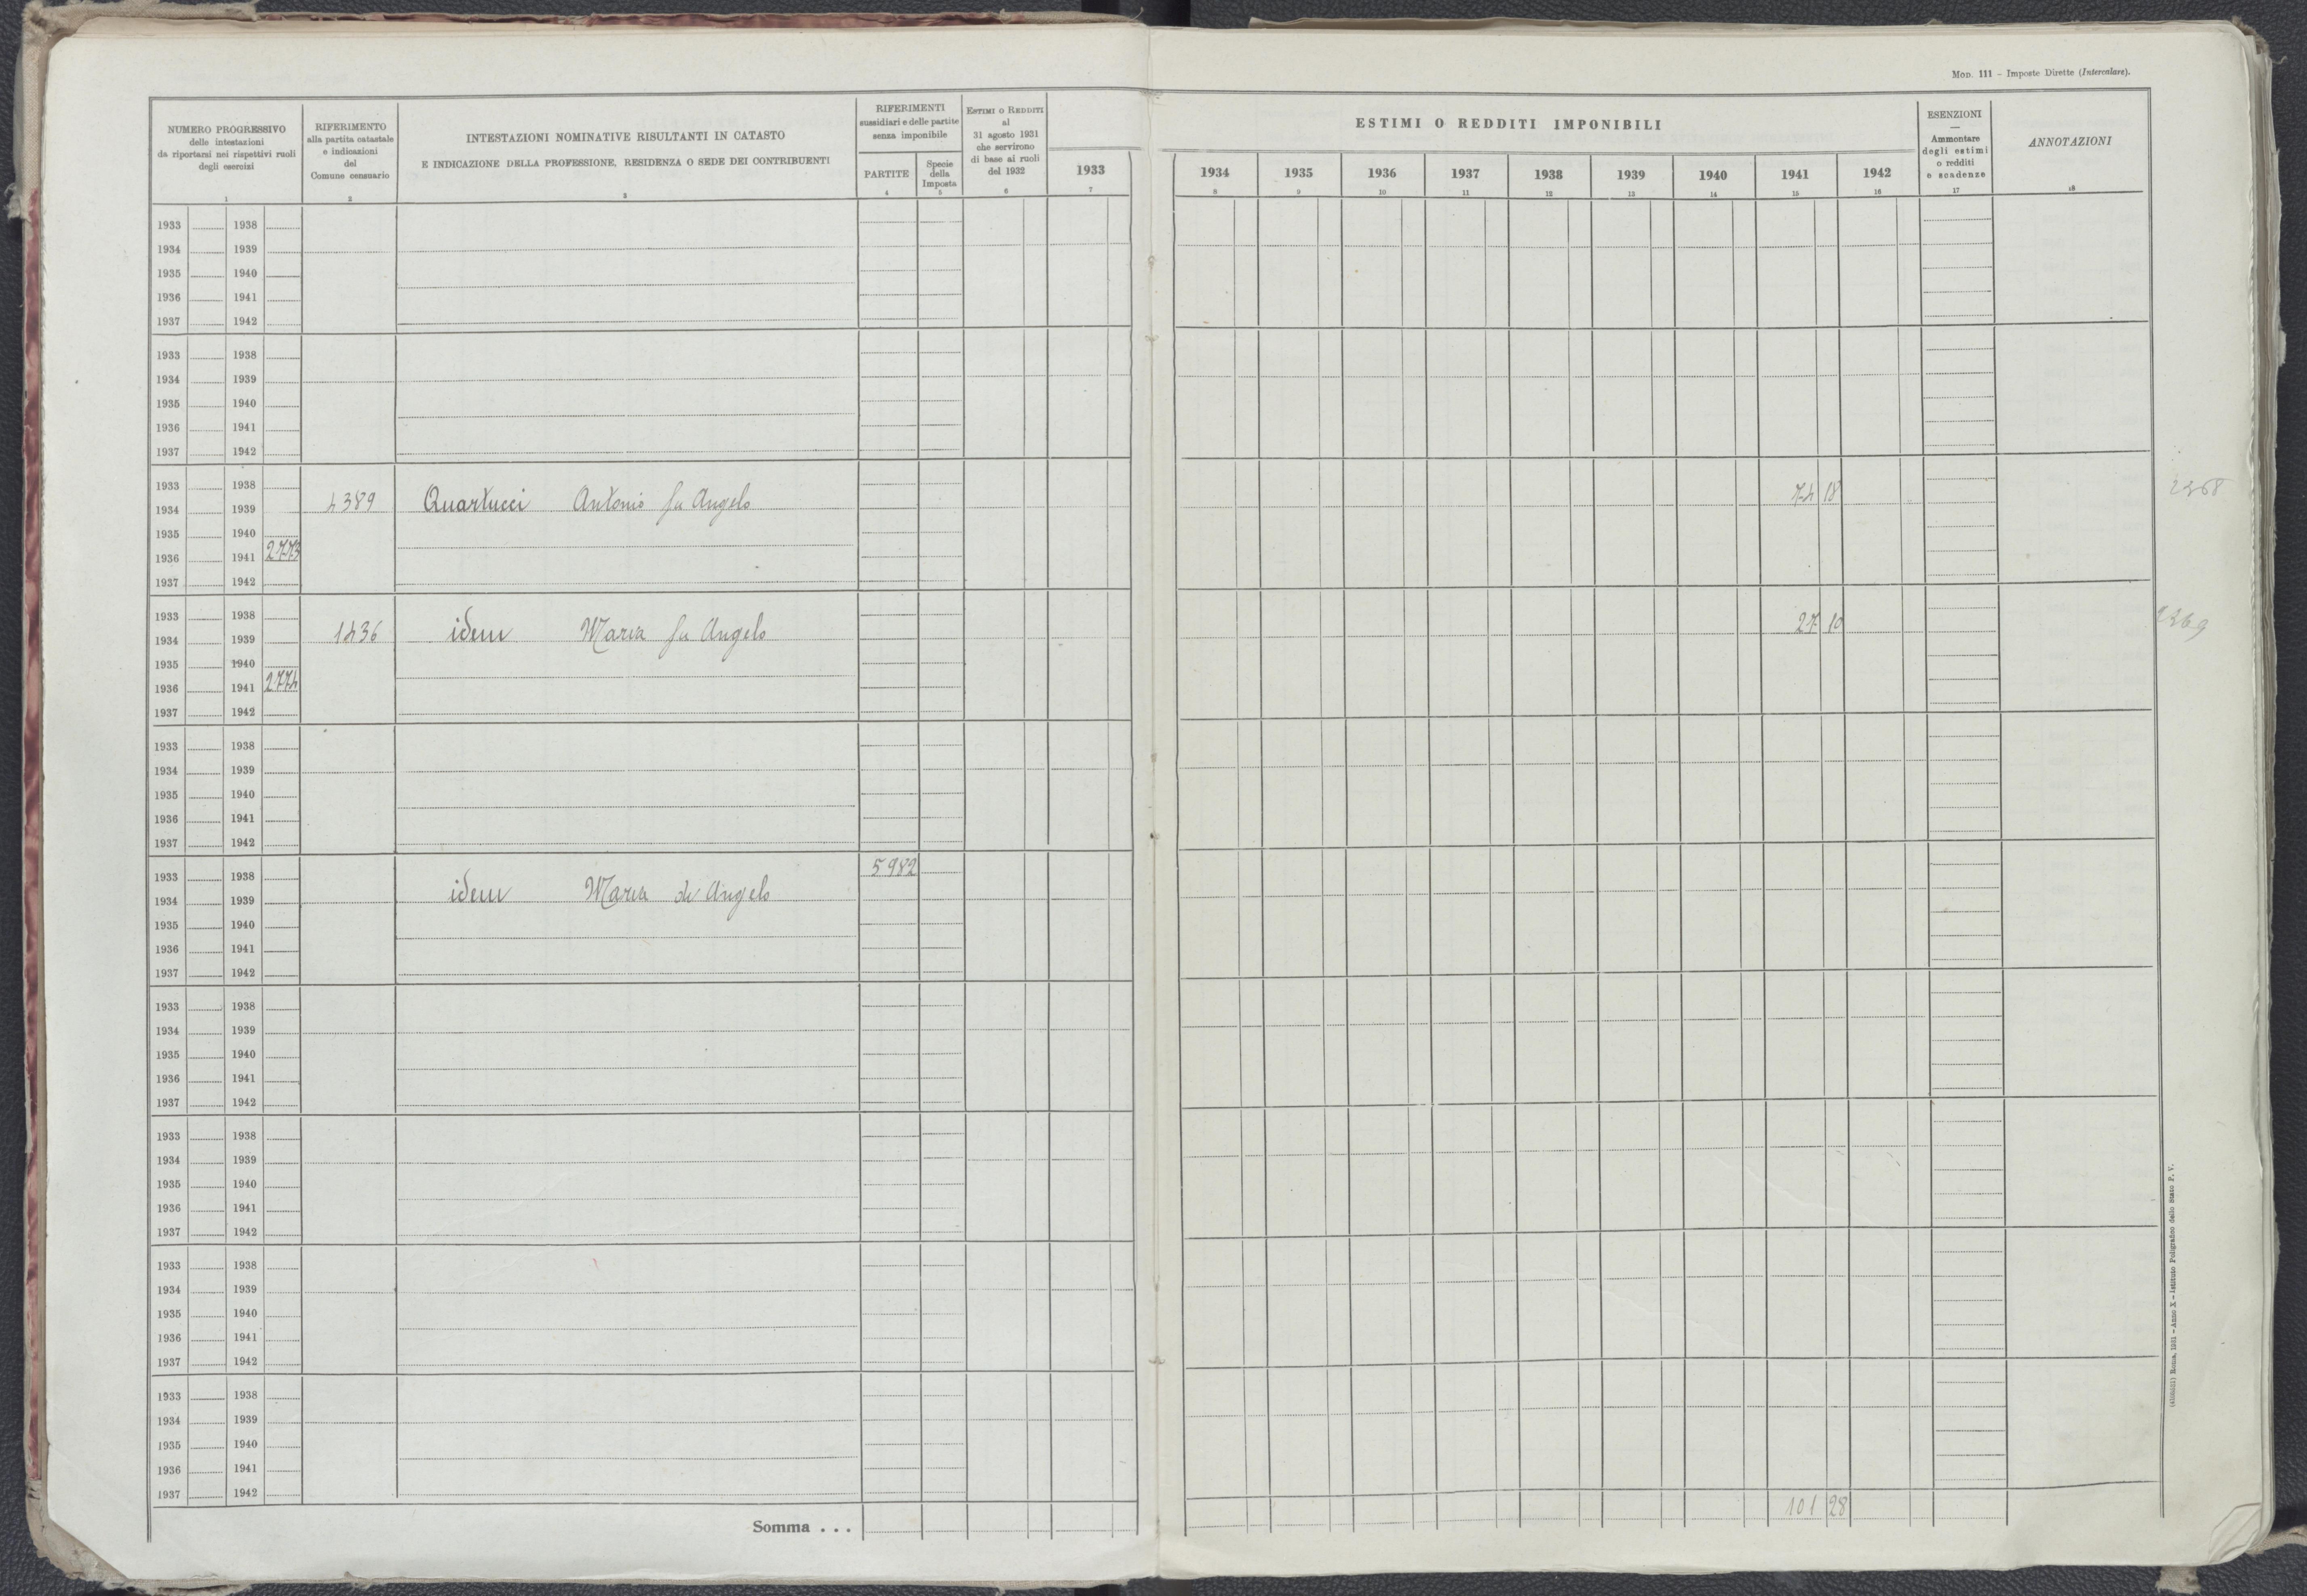 Mod. 111 – Imposte Dirette (Intercalare).
NUMERO PROGRESSIVO
delle intestazioni
da riportarsi nei rispettivi ruoli
degli esercizi
1
RIFERIMENTO
alla partita catastale
e indicazioni
del
Comune censuario
2
INTESTAZIONI NOMINATIVE RISULTANTI IN CATASTO
E INDICAZIONE DELLA PROFESSIONE, RESIDENZA O SEDE DEI CONTRIBUENTI
3
RIFERIMENTI
sussidiari e delle partite
senza imponibile
PARTITE
4
Specie
della
Imposta
5
Estimi o Redditi
al
31 agosto 1931
che servirono
di base ai ruoli
del 1932
6
1933
7
ESTIMI O REDDITI IMPONIBILI
1934 1935 1936 1937 1938 1939 1940 1941 1942
8 9 10 11 12 13 14 15 16
ESENZIONI
—
Ammontare
degli estimi
o redditi
e scadenze
17
ANNOTAZIONI
18
1933 1938
1934 1939
1935 1940
1936 1941
1937 1942
1933 1938
1934 1939
1935 1940
1936 1941
1937 1942
1933 1938
1934 1939 4389 Quartucci Antonio fu Angelo 74 18
1935 1940
1936 1941 2773
1937 1942
1933 1938
1934 1939 1436 idem Maria fu Angelo 27 10
1935 1940
1936 1941 2774
1937 1942
1933 1938
1934 1939
1935 1940
1936 1941
1937 1942
1933 1938 5982
1934 1939 idem Maria di Angelo
1935 1940
1936 1941
1937 1942
1933 1938
1934 1939
1935 1940
1936 1941
1937 1942
1933 1938
1934 1939
1935 1940
1936 1941
1937 1942
1933 1938
1934 1939
1935 1940
1936 1941
1937 1942
1933 1938
1934 1939
1935 1940
1936 1941
1937 1942
Somma . . . 101 28
Roma, 1931 – Anno X – Istituto Poligrafico dello Stato P. V.